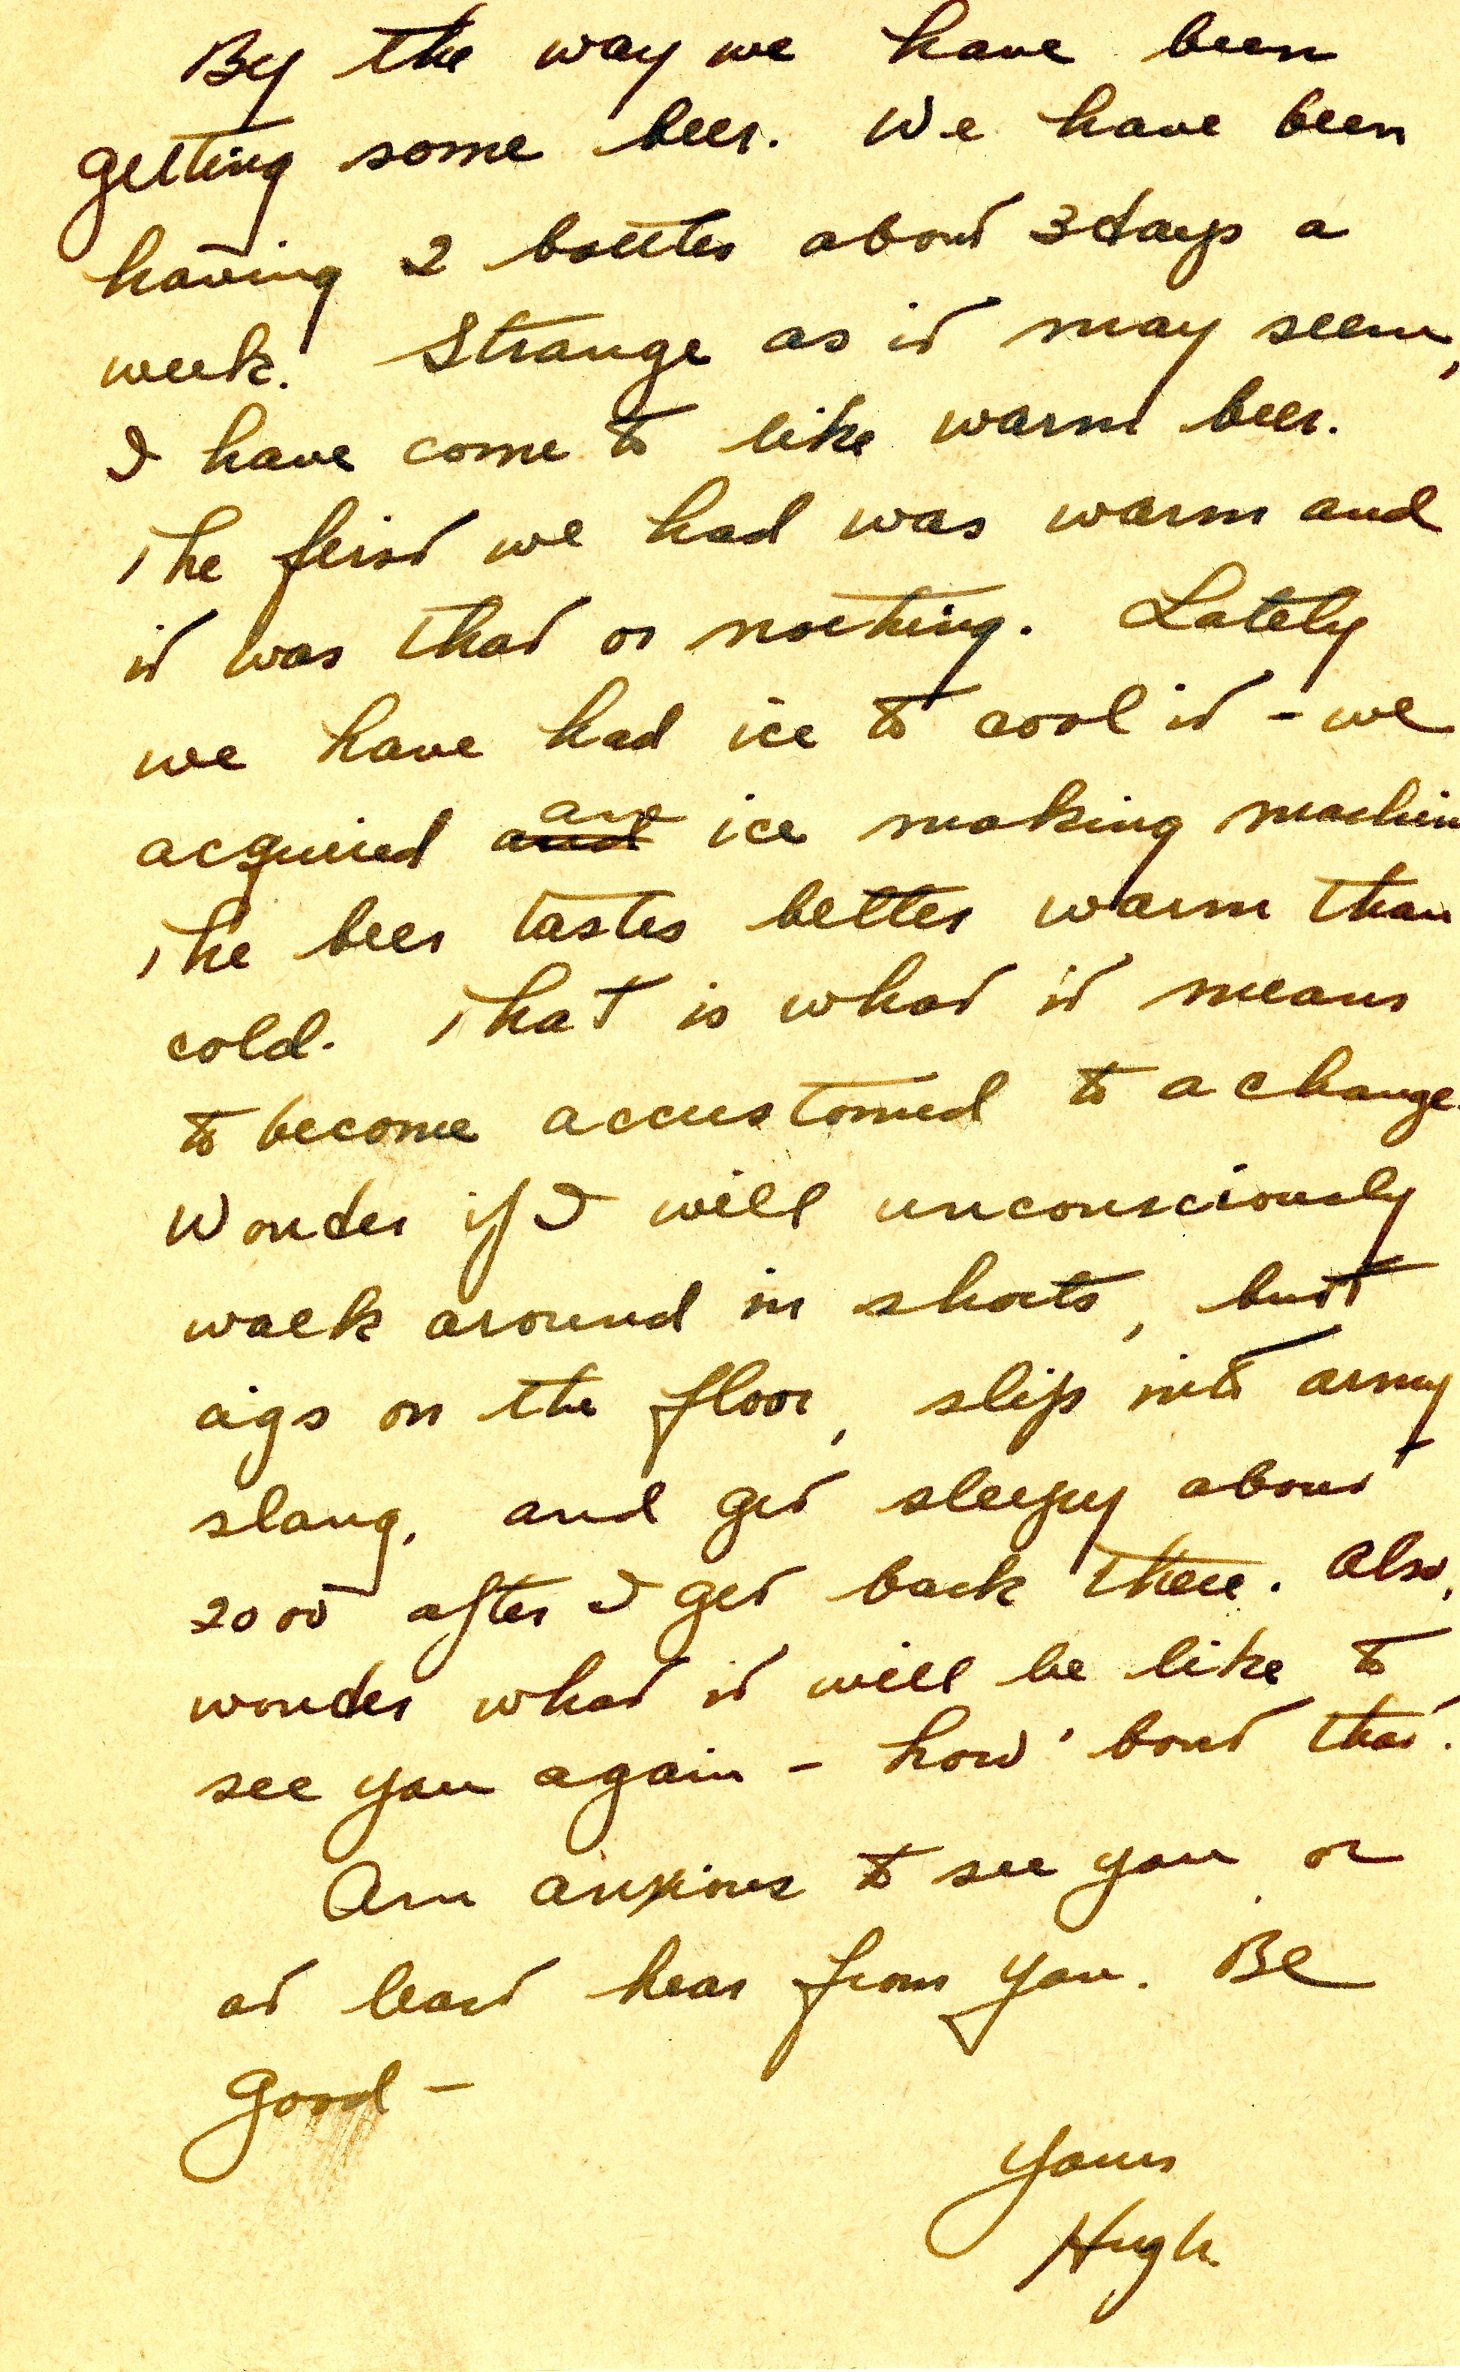 By the way we have been
getting some beer. We have been
having 2 bottles about 3 days a
week. Strange as it may seem,
I have come to like warm beer.
The first we had was warm and
it was that or nothing. Lately
we have had ice to cool it - we
acquired and an ice making machin
The beer tastes better warm than
cold. That is what it means
to become accustomed to a change.
Wonder if I will unconsciously
walk around in shorts, butt
cigs on the floor, slip into army
slang, and get sleepy about
2000 after I get back there. Also,
wonder what it will be like to
see you again - how 'bout that.
Am anxious to see you or
at least hear from you. Be
good -
Yours
Hugh.